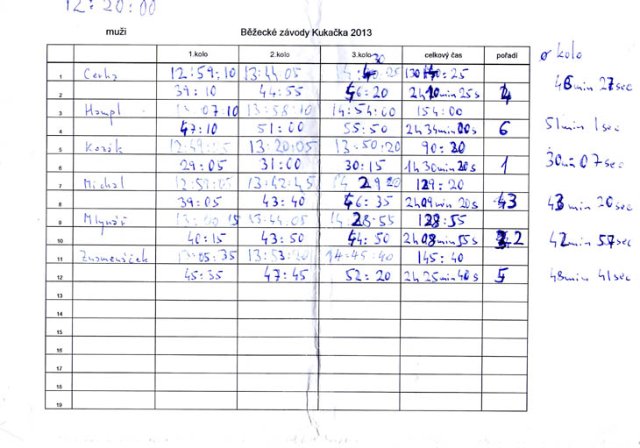 12:20:00
muži Běžecké závody Kukačka 2013
1.kolo 2.kolo 3.kolo celkový čas pořadí ø kolo
1 Cerha 12:59:10 13:44:05 25
2 39:10 44:55 46:20 2h 10min 25s 4 min 27sec
3 Hampl 13:07:10 13:58:10 14:54:00 154:00
4 47:10 51:00 55:50 2h 34min 00s 6 51min 1sec
5 Kozák 12:49:05 13:20:05 13:50:20 90:20
6 29:05 31:00 30:15 1h 30min 20s 1 30min 07sec
7 Michal 12:59:05 13:42:45 14 29 20 129:20
8 39:05 43:40 46:35 2h 09min 20s 3 43min 20sec
9 Mlynář 13:00:15 13:44:05 14 28:55 128:55
10 40:15 43:50 44:50 2h 08min 55s 2 42min 57sec
11 13:05:35 13:53:20 14:45:40 145:40
12 45:35 47:45 52:20 2h 25min 40s 5 48min 41sec
13
14
15
16
17
18
19